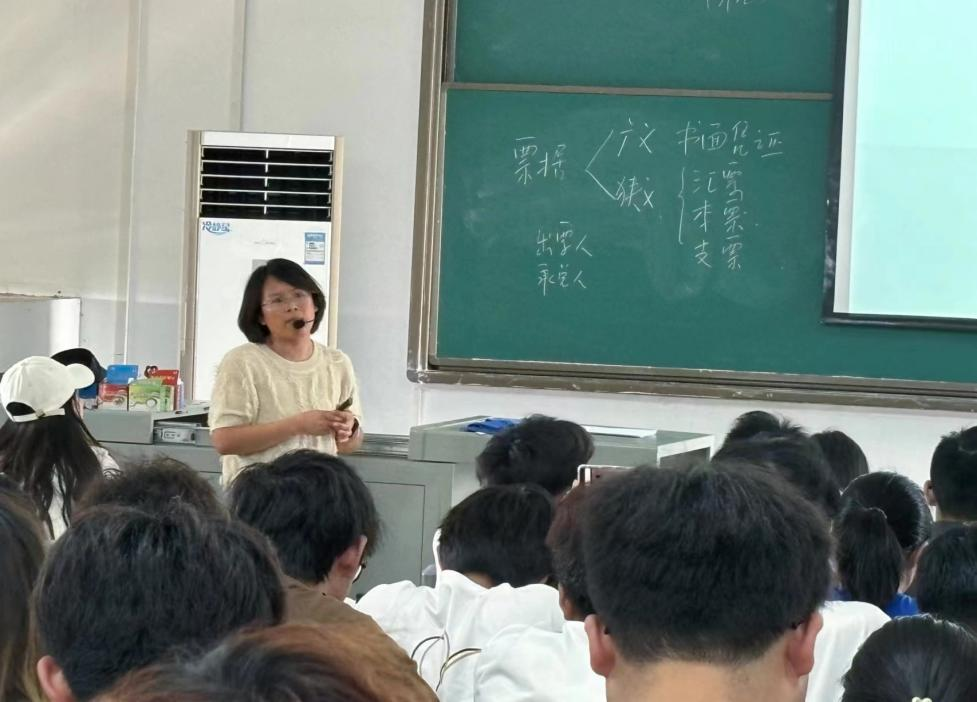 票据
广义 书面凭证
狭义
汇票
本票
支票
出票人
承兑人
冷静星